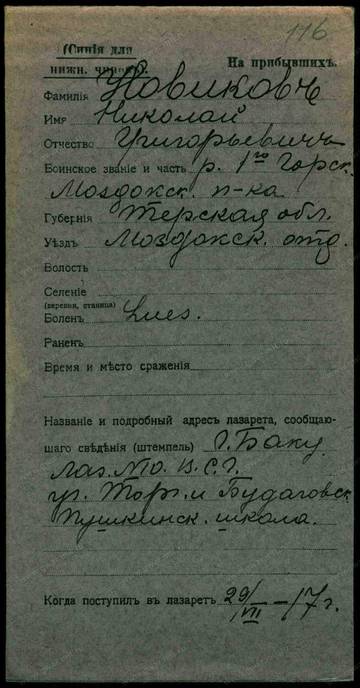 116
(Синія для
нижн. чиновъ).
На прибывшихъ.
Фамилія Новиковъ
Имя Николай
Отчество Григорьевичъ
Воинское званіе и часть р. 1го Горск.
Моздокск. п-ка
Губернія Терская обл.
Уѣздъ Моздокск. отд.
Волость
Селеніе
(деревня, станица)
Боленъ Lues.
Раненъ
Время и мѣсто сраженія
Названіе и подробный адресъ лазарета, сообщаю-
щаго свѣдѣнія (штемпель) г. Баку
Лаз. В. С. Г.
уг. Торг. и Будаговск.
Пушкинск. школа.
Когда поступилъ въ лазаретъ 29/VII - 17 г.